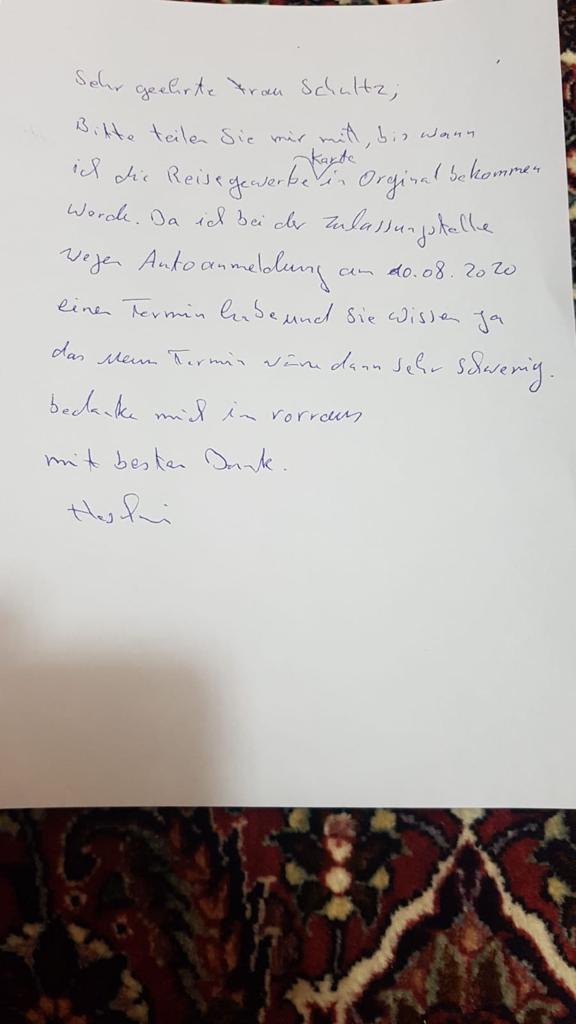 Sehr geehrte Frau Schultz,
Bitte teilen Sie mir mit, bis wann
ich die Reisegewerbekarte in Orginal bekommen
werde. Da ich bei der Zulassungstelle
wegen Autoanmeldung am 10.08.2020
einen Termin habe und Sie wissen ja
das neun Termin wäre dann sehr schwerig.
bedanke mich in vorraus
mit besten Dank.